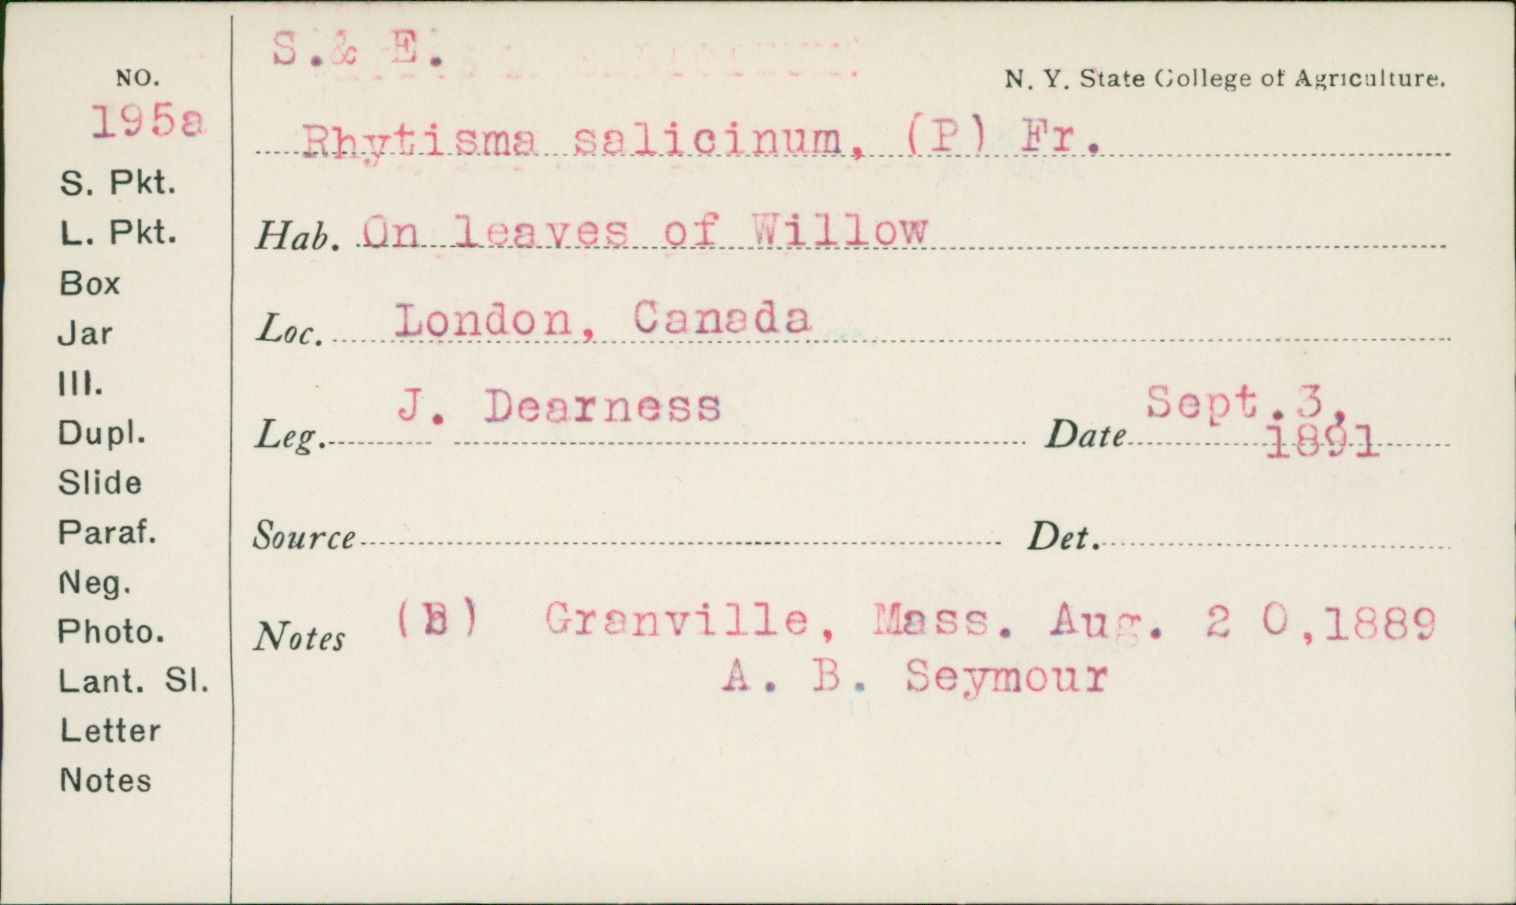 S.& E.
N. Y. State College of Agriculture.
NO.
195a
Rhytisma salicinum, (P) Fr.
S. Pkt.
L. Pkt.
Hab. On leaves of Willow
Box
Jar
Loc. London, Canada
Ill.
Dupl.
Leg. J. Dearness Date Sept.3,
1891
Slide
Paraf.
Source Det.
Neg.
Photo.
Notes (B) Granville, Mass. Aug. 2 0,1889
A. B. Seymour
Lant. Sl.
Letter
Notes